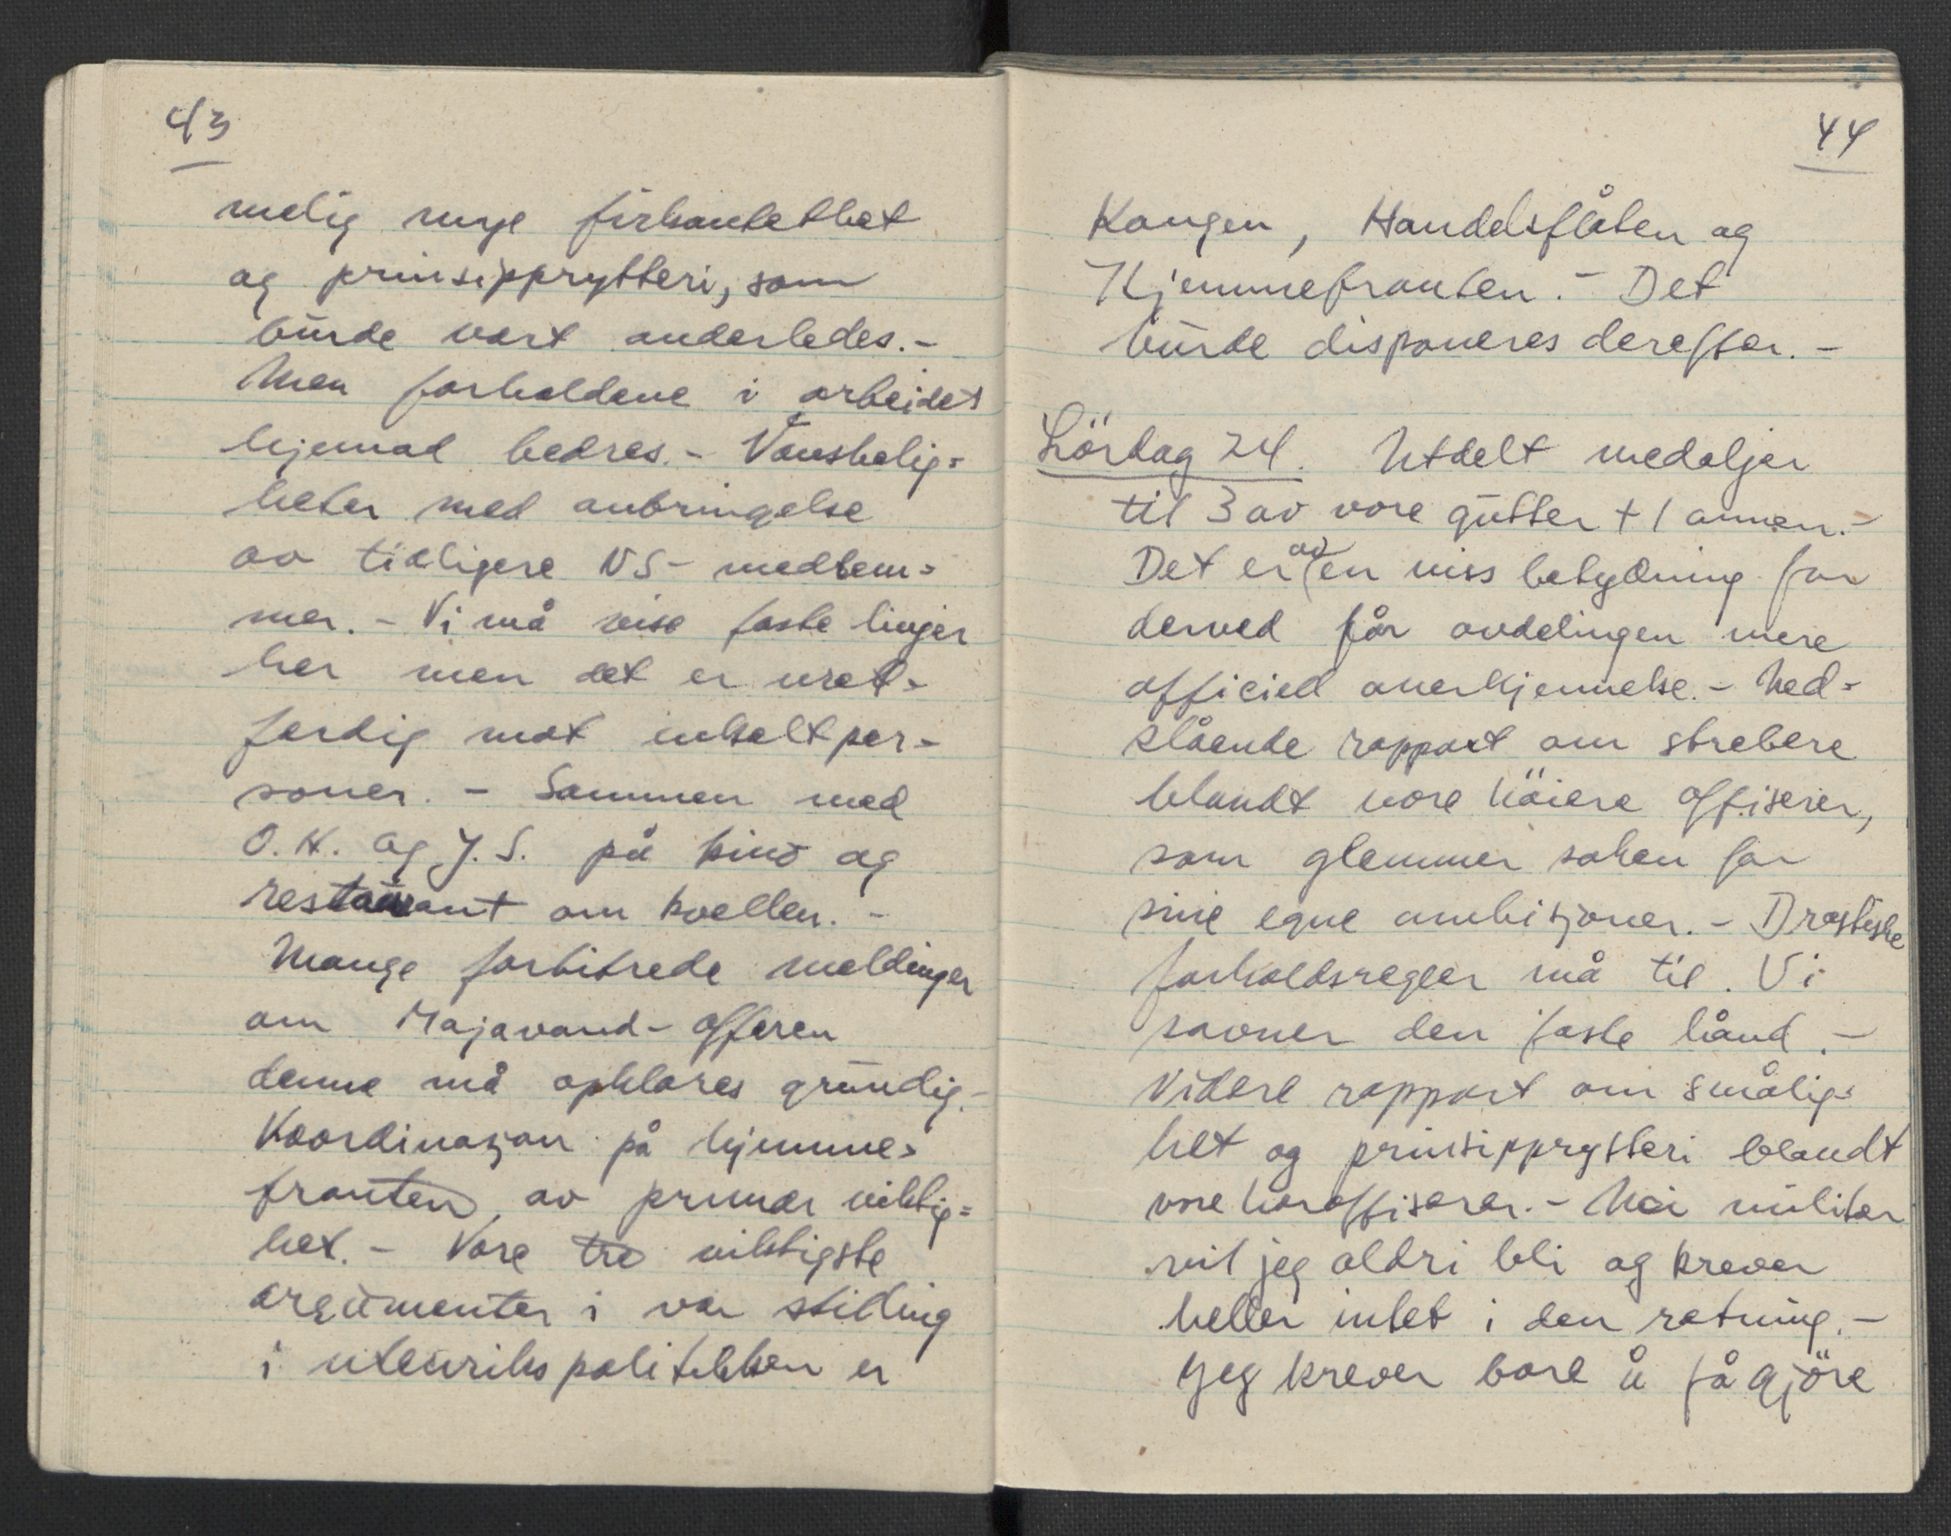 43
melig mye firkantethet
og prinsipprytteri, som
burde vært anderledes. -
Men forholdene i arbeidet
hjemad bedres. - Vanskelig=
heter med anbringelse
av tidligere NS - medlem=
mer. - Vi må vise faste linjer
her men det er uret=
ferdig mot enkeltper=
soner. - Sammen med
O.H. og J.S. på kino og
restaurant om kvellen. -
Mange forbitrede meldinger
om Majavand - offeren
denne må opklares grundig. -
Koordinasjon på hjemme=
fronten av primær viktig=
het. - Vore tre viktigste
argumenter i vor stilling
i utenrikspolitikken er
44
Kongen, Handelsflåten og
Hjemmefronten. - Det
burde disponeres derefter. -
Lördag 24. Utdelt medaljer
til 3 av vore gutter + 1 annen. -
Det er av en viss betydning for
derved får avdelingen mere
officiell anerkjennelse. - Ned=
slående rapport om strebere
blandt vore höiere offiserer,
som glemmer saken for
sine egne ambisjoner. - Drastiske
forholdsregler må til. Vi
savner den faste hånd. -
Videre rapport om smålig=
het og prinsipprytteri blandt
vore hæroffiserer. - Nei militær
vil jeg aldri bli og krever
heller intet i den retning. -
Jeg krever bare å få gjöre